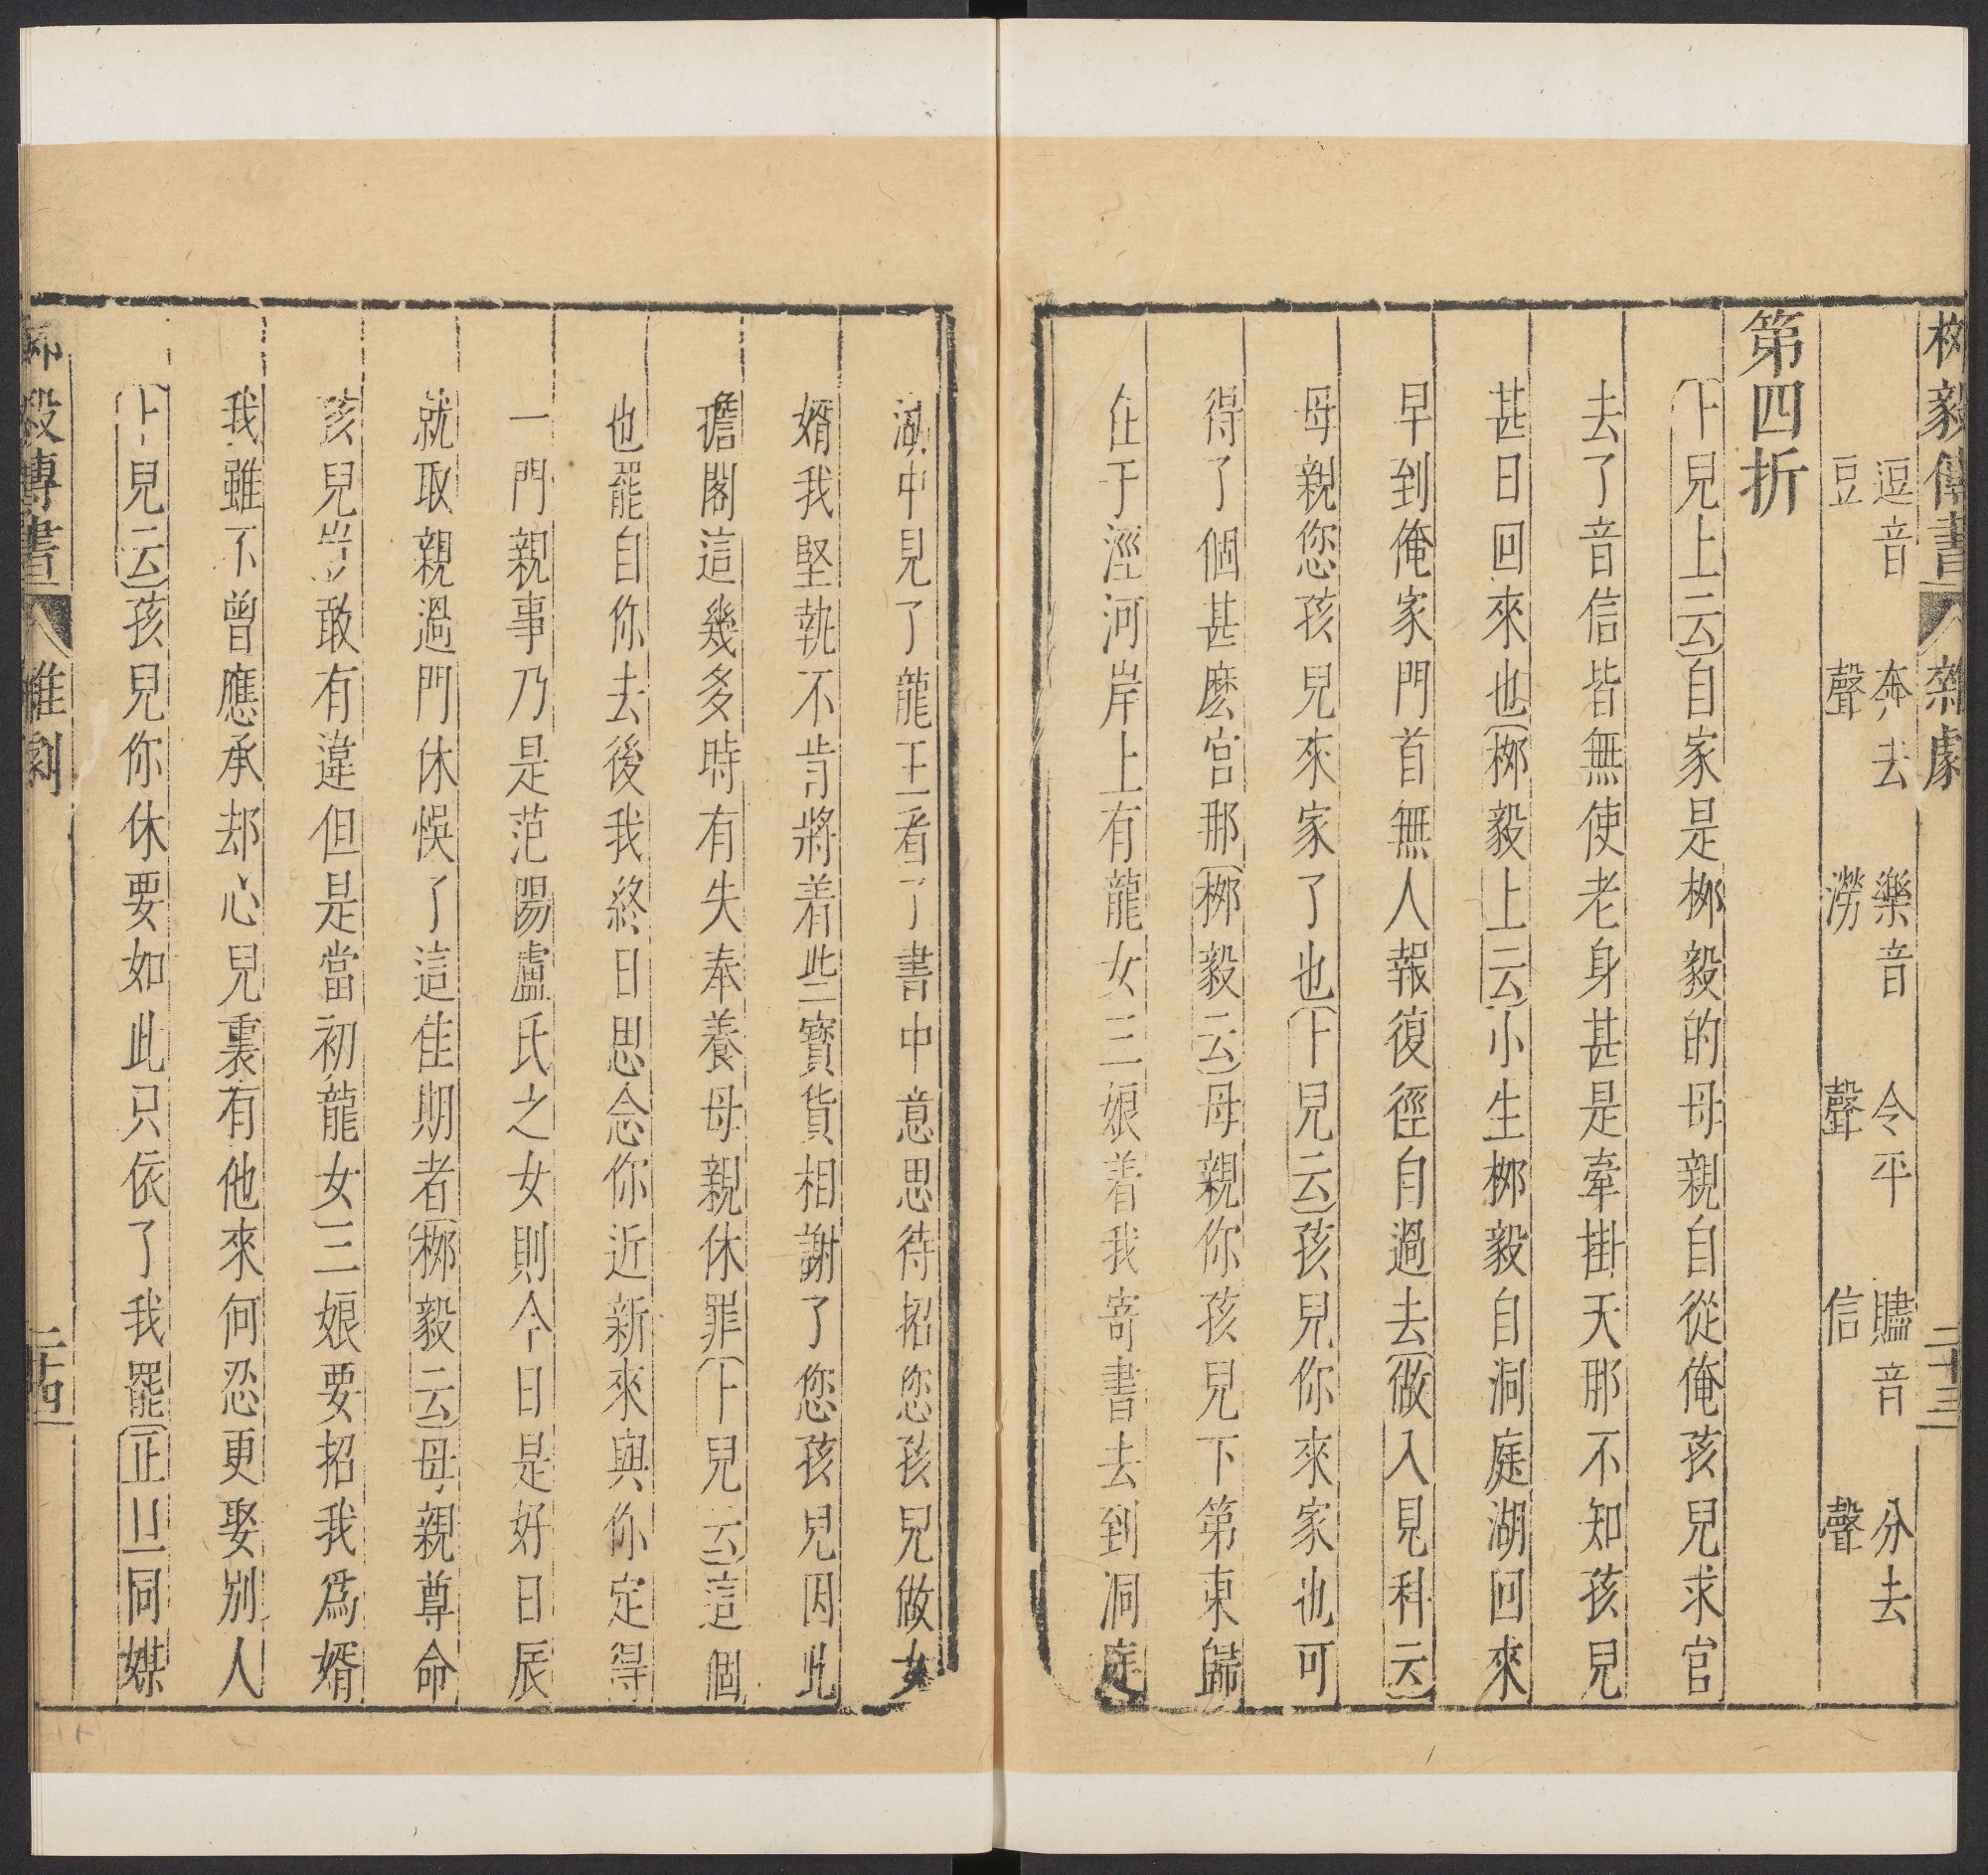 柳毅傳書 雜劇 二十三
逗音豆 奔去聲 樂音澇 令平聲 贐音信 分去聲
第四折
卜兒上云自家是柳毅的母親自從俺孩兒求官
去了音信皆無使老身甚是牽掛天那不知孩兒
甚日回來也柳毅上云小生柳毅自洞庭湖回來
早到俺家門首無人報復徑自過去做入見科云
母親您孩兒來家了也卜兒云孩兒你來家也可
得了個甚麽官那柳毅云母親你孩兒下第東歸
在于涇河岸上有龍女三娘着我寄書去到洞庭
湖中見了龍王看了書中意思待招您孩兒做女
婿我堅執不肯將着些寶貨相謝了您孩兒因此
擔閣這幾多時有失奉養母親休罪卜兒云這個
也罷自你去後我終日思念你近新來與你定得
一門親事乃是范陽盧氏之女則今日是好日辰
就取親過門休悞了這佳期者柳毅云母親尊命
孩兒豈敢有違但是當初龍女三娘要招我爲婿
我雖不曾應承却心兒裏有他來何忍更娶别人
卜兒云孩兒你休要如此只依了我罷正旦同媒
柳毅傳書 雜劇 二十四